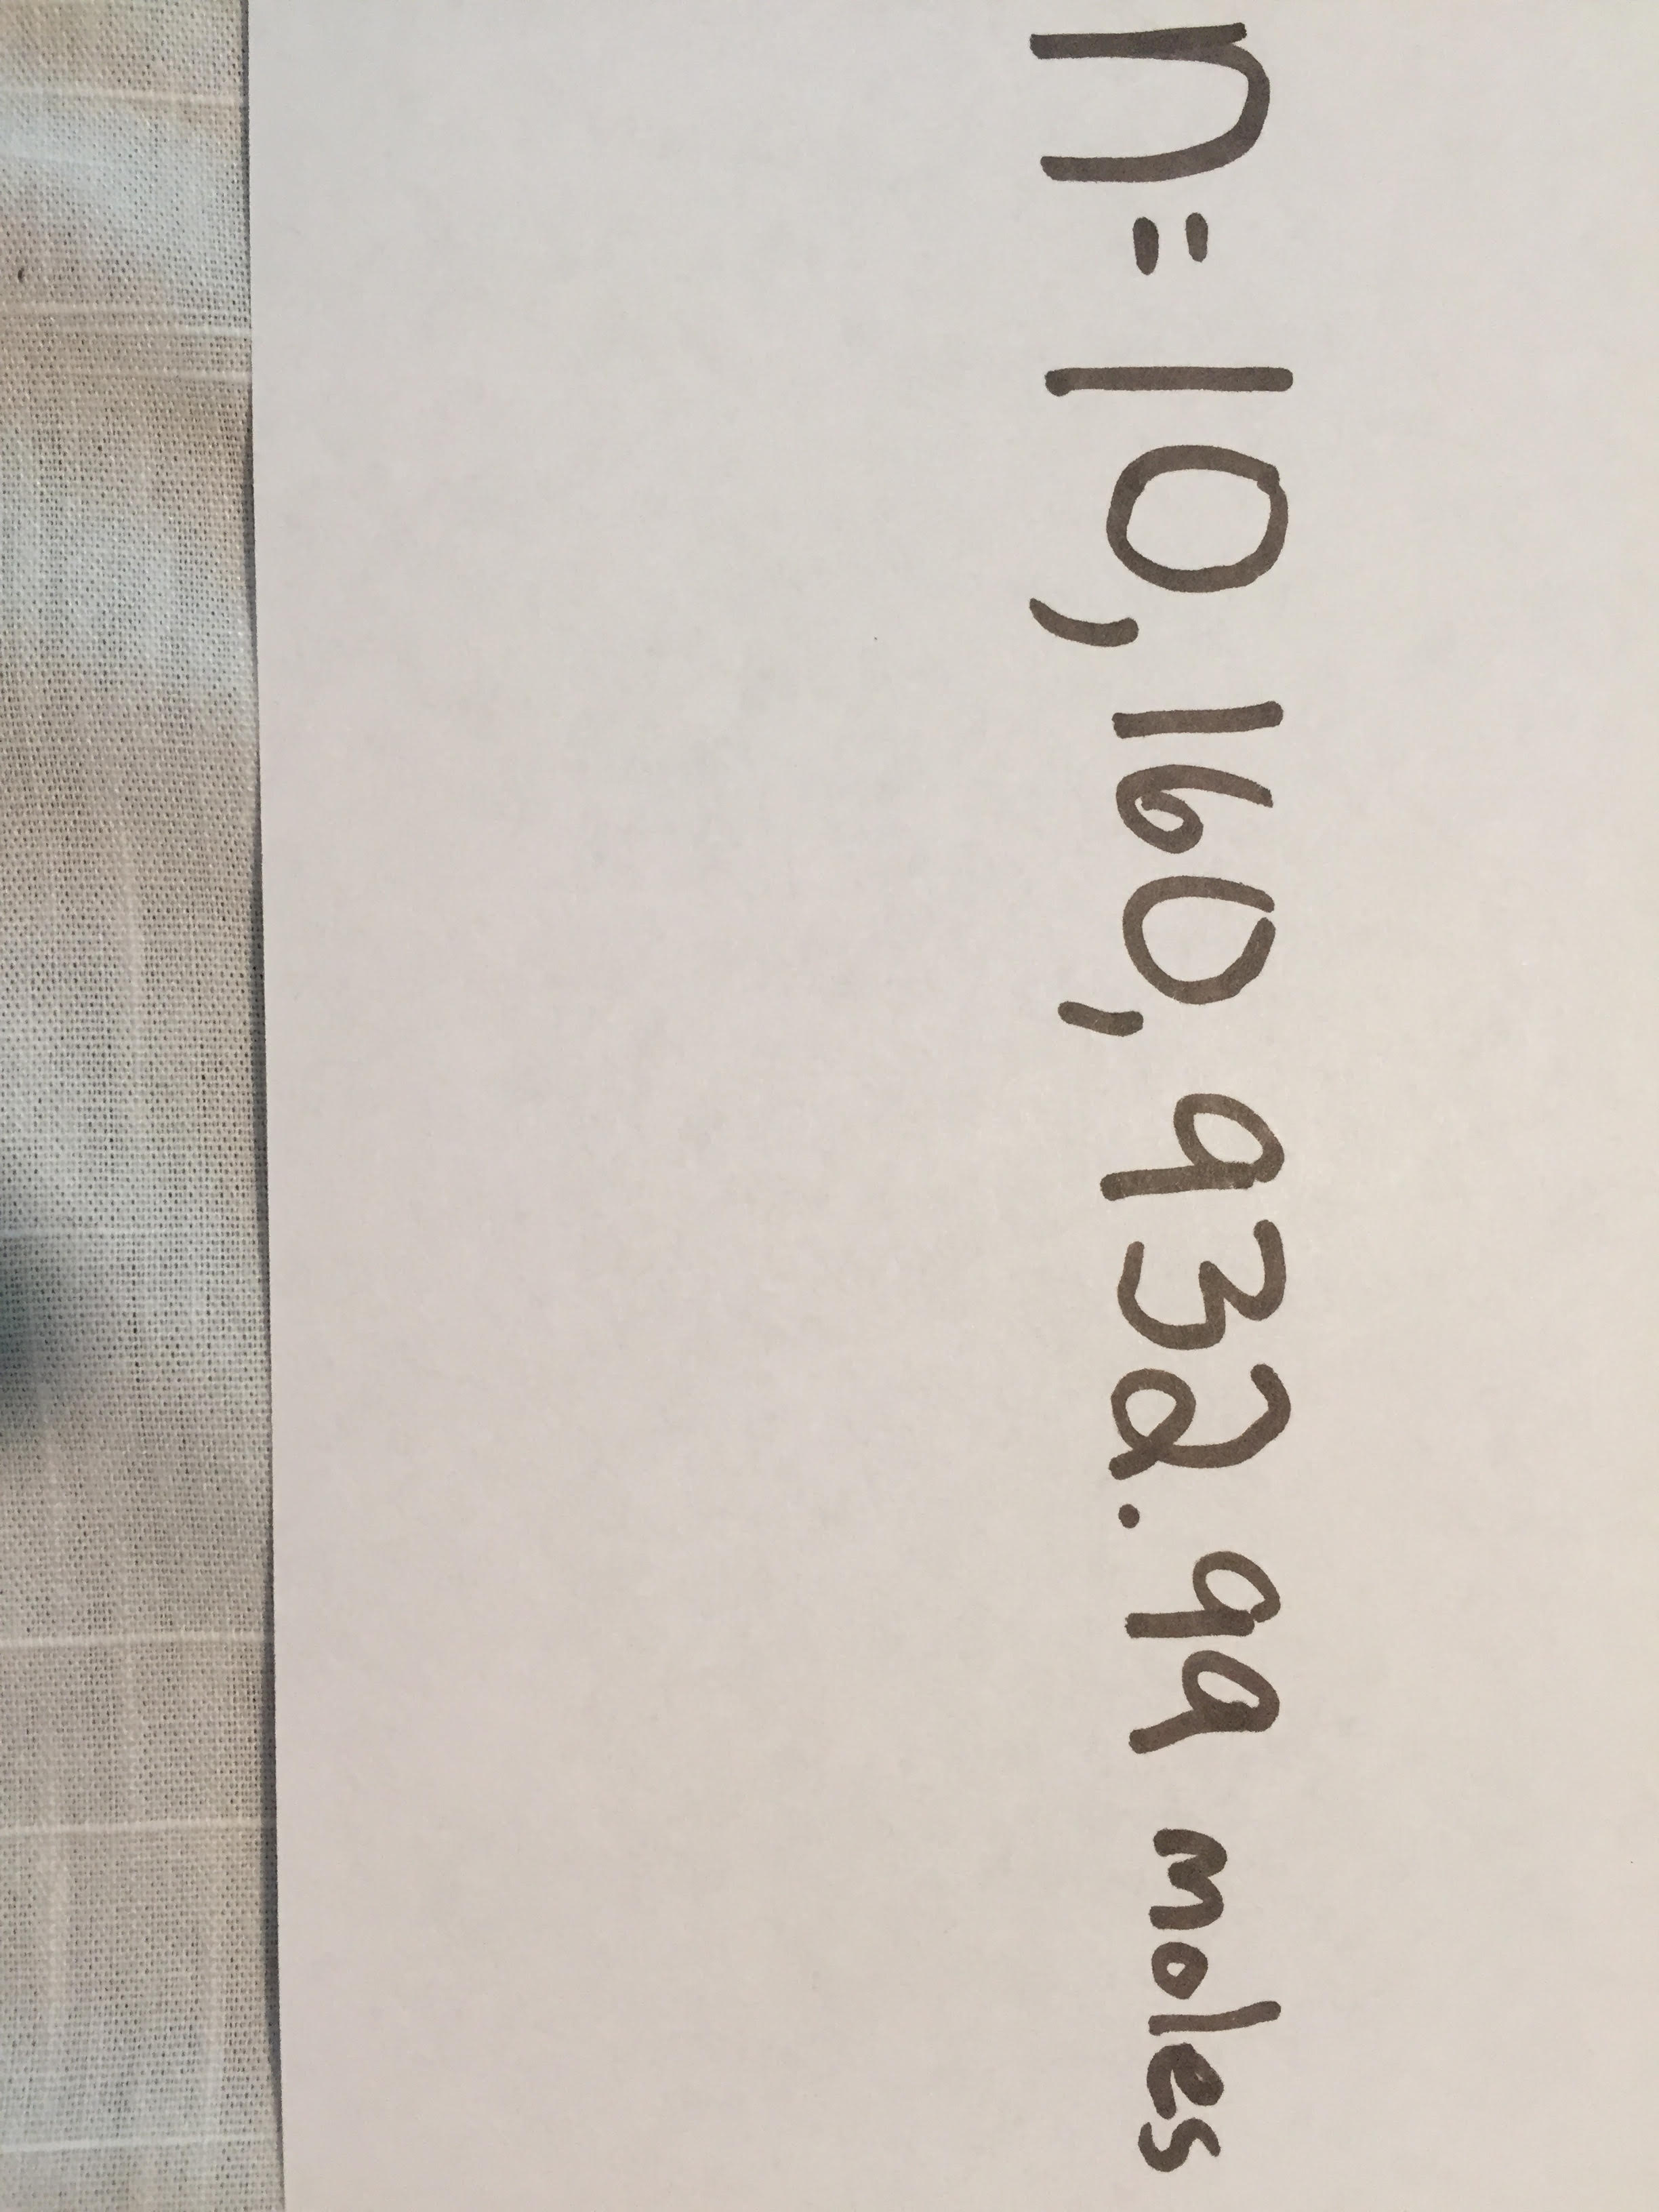 n= 10,160,932.99 moles